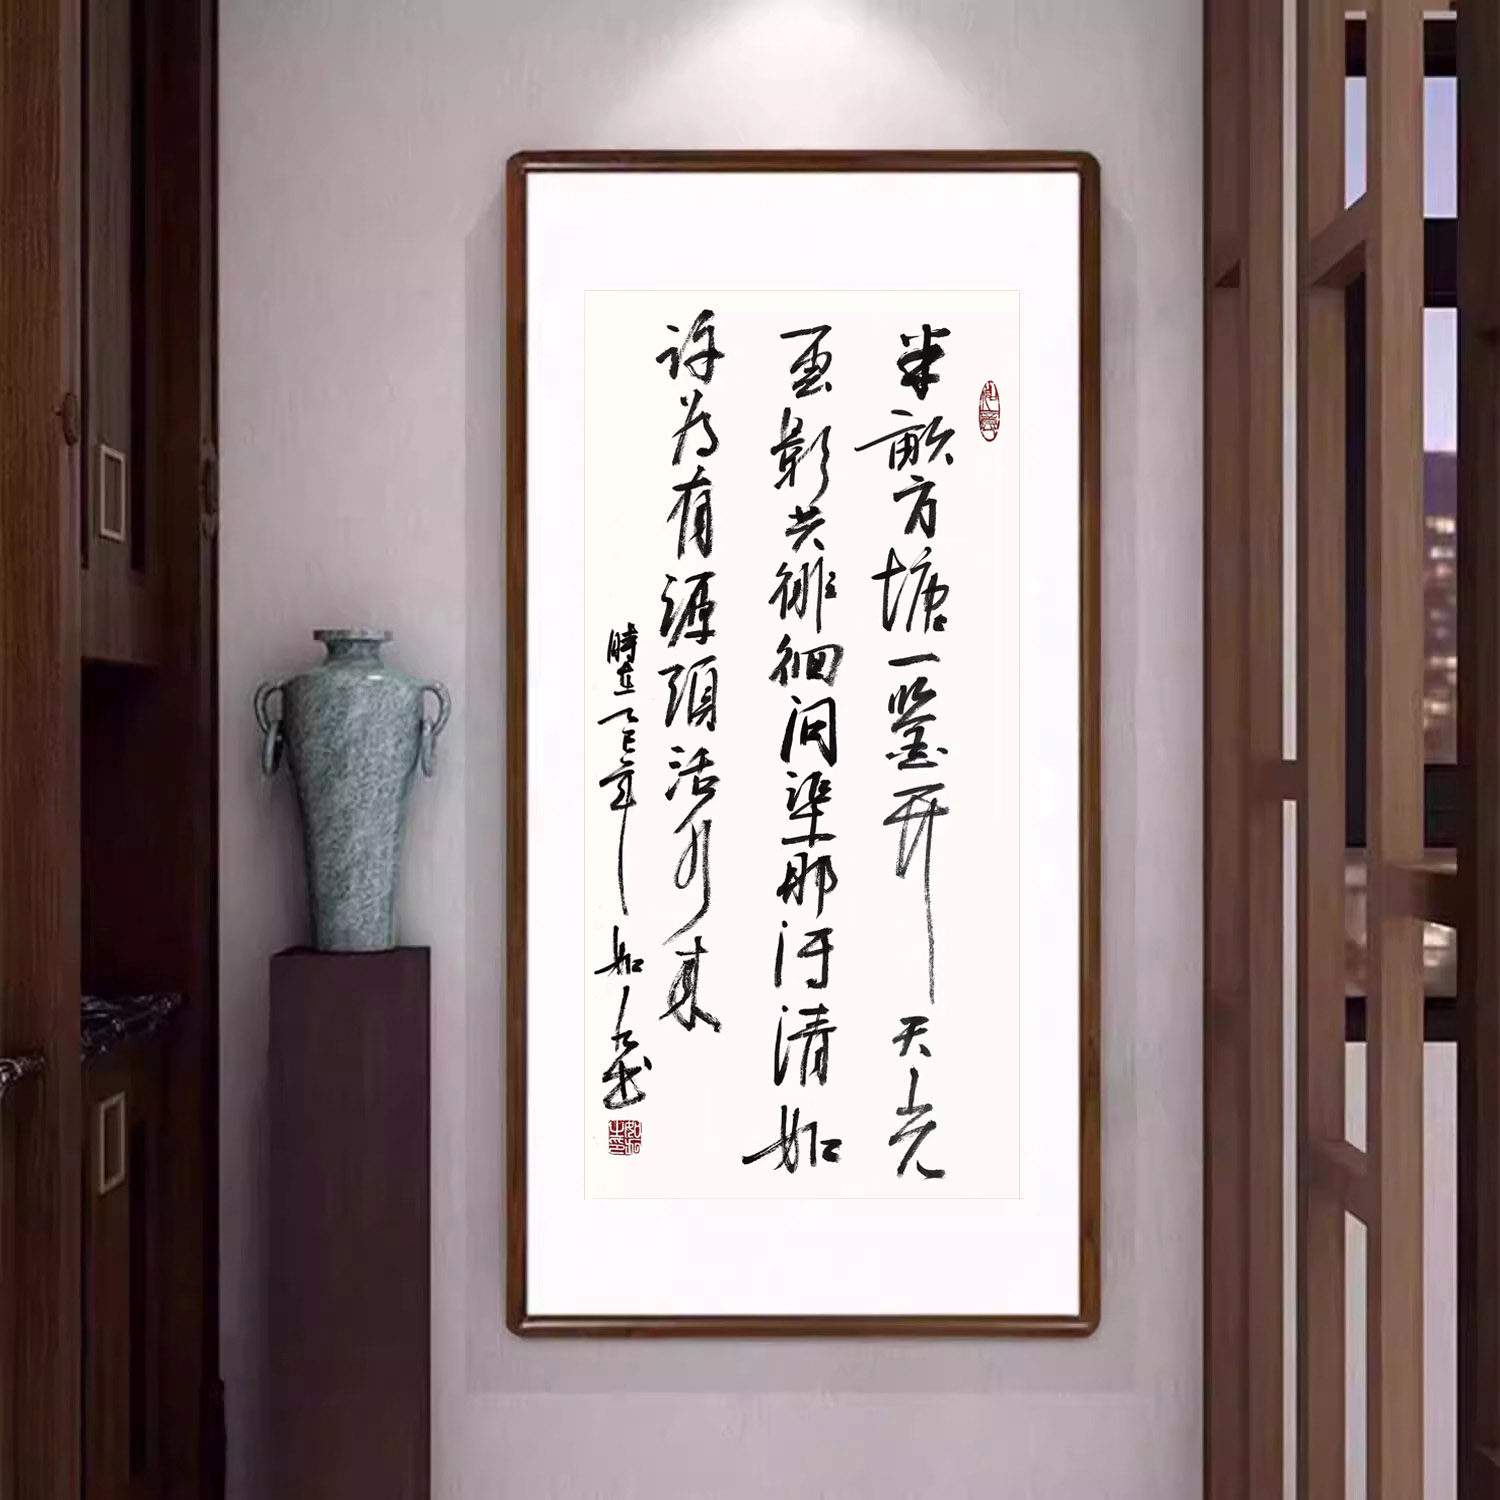 半畝方塘一鑒開天光
雲影共徘徊問渠那得清如
許為有源頭活水來
時在乙巳年